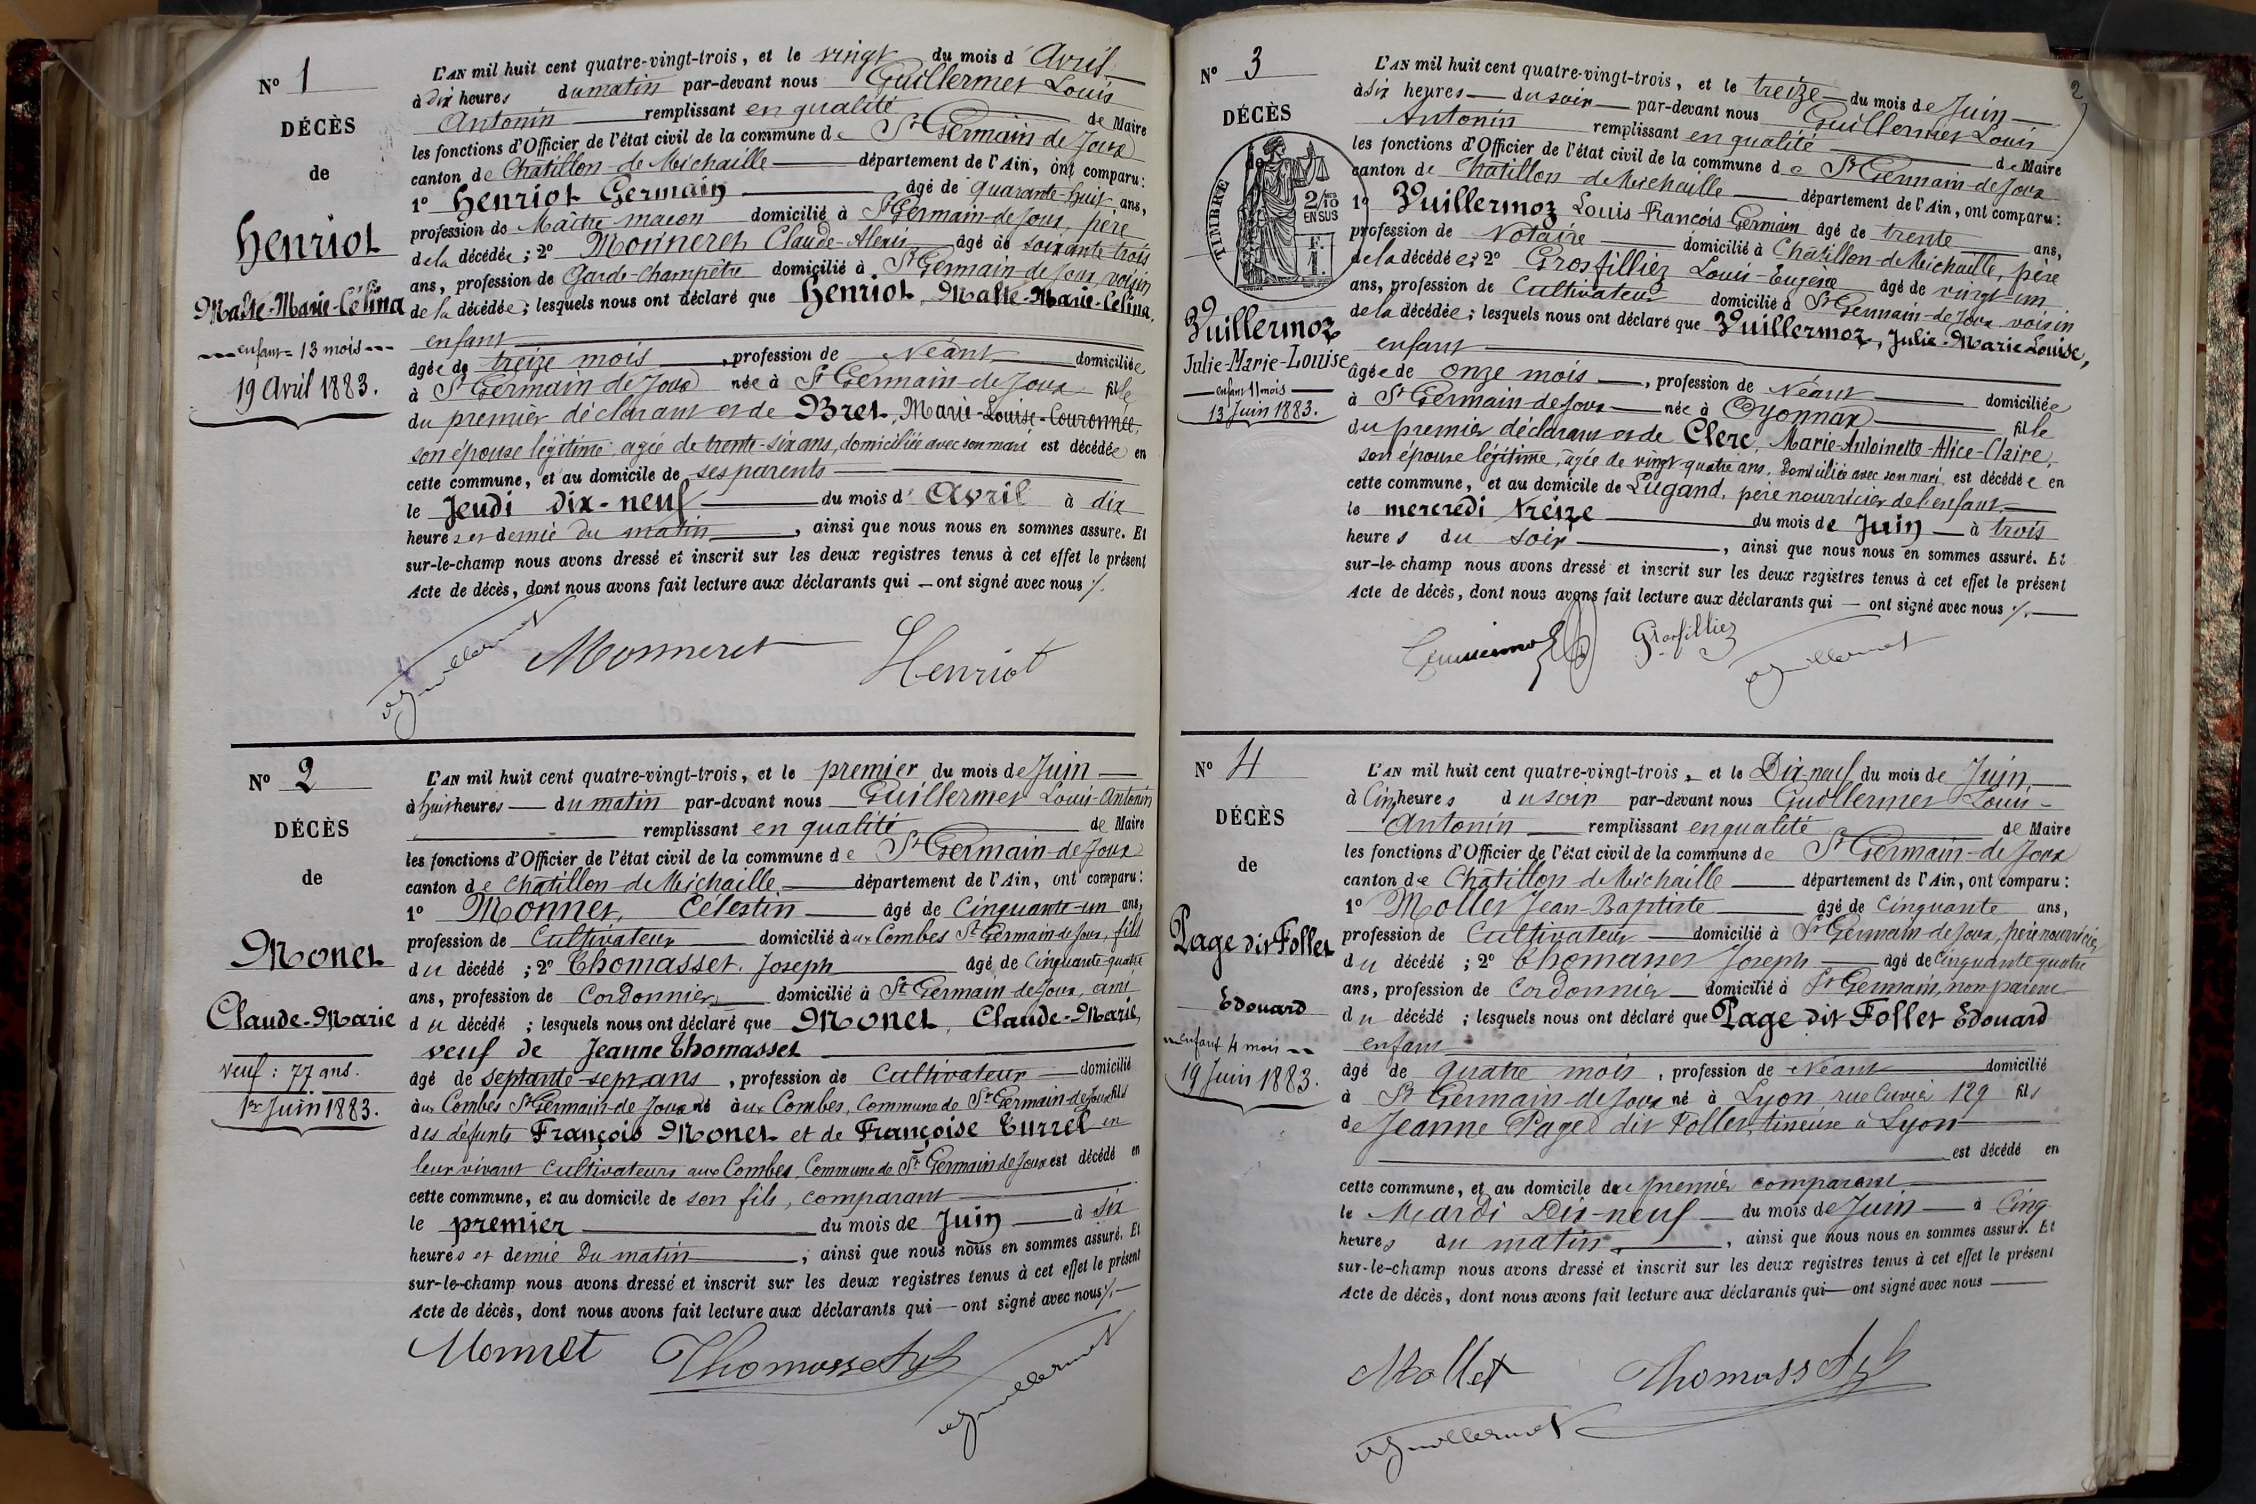 N° 1
DÉCÈS
de
Henriot
Malte-Marie-Célina
enfant = 13 mois
19 Avril 1883.
L'AN mil huit cent quatre-vingt-trois, et le vingt du mois d'Avril
à dix heures du matin par-devant nous Guillermet Louis
Antonin remplissant en qualité de Maire
les fonctions d'Officier de l'état civil de la commune de St Germain de Joux
canton de Châtillon-de-Michaille département de l'Ain, ont comparu:
1° Henriot Germain âgé de quarante-huit ans,
profession de Maître maçon domicilié à St Germain-de-Joux, père
de la décédée; 2° Monneret Claude-Alexis âgé de soixante trois
ans, profession de Garde-Champêtre domicilié à St Germain-de-Joux, voisin
de la décédée; lesquels nous ont déclaré que Henriot, Malte-Marie-Célina,
enfant
âgée de treize mois, profession de Néant domiciliée
à St Germain de Joux née à St Germain-de-Joux fille
du premier déclarant et de Bret, Marie-Louise-Couronnée,
son épouse légitime âgée de trente-six ans, domiciliée avec son mari est décédée en
cette commune, et au domicile de ses parents
le Jeudi dix-neuf du mois d'Avril à dix
heures et demie du matin, ainsi que nous nous en sommes assuré. Et
sur-le-champ nous avons dressé et inscrit sur les deux registres tenus à cet effet le présent
Acte de décès, dont nous avons fait lecture aux déclarants qui — ont signé avec nous ./.
Guillermet Monneret Henriot
N° 2
DÉCÈS
de
Monet
Claude-Marie
Veuf: 77 ans.
1er Juin 1883.
L'AN mil huit cent quatre-vingt-trois, et le premier du mois de Juin
à huit heures du matin par-devant nous Guillermet Louis-Antonin
remplissant en qualité de Maire
les fonctions d'Officier de l'état civil de la commune de St Germain-de-Joux
canton de Châtillon-de-Michaille département de l'Ain, ont comparu:
1° Monnet, Célestin âgé de Cinquante-un ans,
profession de Cultivateur domicilié aux Combes St Germain-de-Joux, fils
du décédé; 2° Thomasset, Joseph âgé de Cinquante-quatre
ans, profession de Cordonnier domicilié à St Germain-de-Joux, ami
du décédé; lesquels nous ont déclaré que Monet, Claude-Marie,
veuf de Jeanne Thomasset
âgé de septante-sept ans, profession de Cultivateur domicilié
aux Combes St Germain-de-Joux né aux Combes, Commune de St Germain-de-Joux fils
des défunts François Monet et de Françoise Turrel en
leur vivant cultivateurs aux Combes, Commune de St Germain de Joux est décédé en
cette commune, et au domicile de son fils, comparant
le premier du mois de Juin à six
heures et demie du matin, ainsi que nous nous en sommes assuré. Et
sur-le-champ nous avons dressé et inscrit sur les deux registres tenus à cet effet le présent
Acte de décès, dont nous avons fait lecture aux déclarants qui — ont signé avec nous ./.
Monnet Thomasset Guillermet
2
N° 3
DÉCÈS
de
TIMBRE
2/10 EN SUS
F. 1.
Vuillermoz
Julie-Marie-Louise
enfant 11 mois
13 Juin 1883.
L'AN mil huit cent quatre-vingt-trois, et le treize du mois de Juin
à six heures du soir par-devant nous Guillermet Louis
Antonin remplissant en qualité de Maire
les fonctions d'Officier de l'état civil de la commune de St Germain-de-Joux
canton de Châtillon-de-Michaille département de l'Ain, ont comparu:
1° Vuillermoz Louis-François Germain âgé de trente ans,
profession de Notaire domicilié à Châtillon-de-Michaille, père
de la décédée; 2° Grosfilliez Louis-Eugène âgé de vingt-un
ans, profession de Cultivateur domicilié à St Germain-de-Joux voisin
de la décédée; lesquels nous ont déclaré que Vuillermoz, Julie-Marie Louise,
enfant
âgée de onze mois, profession de Néant domiciliée
à St Germain de Joux née à Oyonnax fille
du premier déclarant et de Clerc, Marie-Antoinette-Alice-Claire,
son épouse légitime, âgée de vingt quatre ans, domiciliée avec son mari, est décédée en
cette commune, et au domicile de Lugand, père nourricier de l'enfant
le mercredi treize du mois de Juin à trois
heures du soir, ainsi que nous nous en sommes assuré. Et
sur-le-champ nous avons dressé et inscrit sur les deux registres tenus à cet effet le présent
Acte de décès, dont nous avons fait lecture aux déclarants qui — ont signé avec nous ./.
Grosfilliez Guillermet
N° 4
DÉCÈS
de
Page dit Follet
Edouard
enfant 4 mois
19 Juin 1883.
L'AN mil huit cent quatre-vingt-trois, et le Dix-neuf du mois de Juin
à Cinq heures du soir par-devant nous Guillermet Louis-
Antonin remplissant en qualité de Maire
les fonctions d'Officier de l'état civil de la commune de St Germain-de-Joux
canton de Châtillon-de-Michaille département de l'Ain, ont comparu:
1° Mollet Jean-Baptiste âgé de Cinquante ans,
profession de Cultivateur domicilié à St Germain-de-Joux, père nourricier
du décédé; 2° Thomasset Joseph âgé de Cinquante quatre
ans, profession de Cordonnier domicilié à St Germain, non parent
du décédé; lesquels nous ont déclaré que Page dit Follet Edouard
enfant
âgé de quatre mois, profession de Néant domicilié
à St Germain-de-Joux né à Lyon, rue Cuvier 129 fils
de Jeanne Page dit Follet, tireuse à Lyon
est décédé en
cette commune, et au domicile du premier comparant
le Mardi Dix-neuf du mois de Juin à Cinq
heures du matin, ainsi que nous nous en sommes assuré. Et
sur-le-champ nous avons dressé et inscrit sur les deux registres tenus à cet effet le présent
Acte de décès, dont nous avons fait lecture aux déclarants qui — ont signé avec nous
Mollet Thomasset
Guillermet